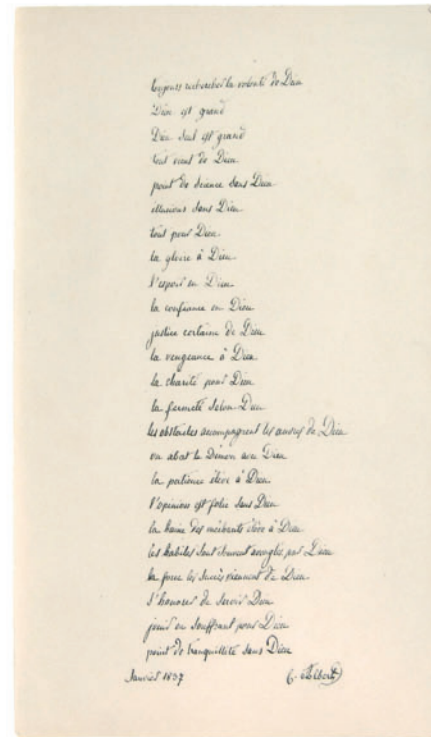 toujours rechercher la volonté de Dieu
Dieu est grand
Dieu seul est grand
tout vient de Dieu
point de science sans Dieu
illusions sans Dieu
tout pour Dieu
la gloire à Dieu
l'espoir en Dieu
la confiance en Dieu
justice certaine de Dieu
la vengeance à Dieu
la charité pour Dieu
la fermeté selon Dieu
les obstacles accompagnent les œuvres de Dieu
on abat le Démon avec Dieu
la patience élève à Dieu
l'opinion est folie sans Dieu
la haine des méchants élève à Dieu
les habiles sont souvent aveuglés par Dieu
la force les succès viennent de Dieu
s'honorer de servir Dieu
jouir en souffrant pour Dieu
point de tranquillité sans Dieu
Janvier 1837 C. Albert